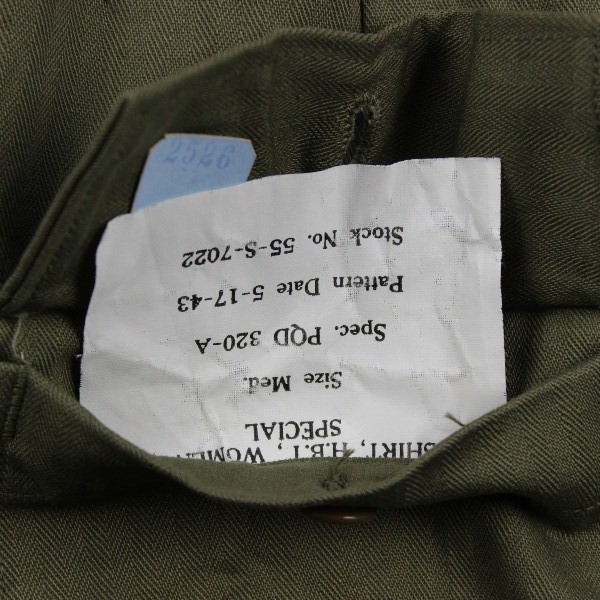 SHIRT, H.B.T., WOMEN
SPECIAL
Size Med.
Spec. PQD 320-A
Pattern Date 5-17-43
Stock No. 55-S-7022
2526